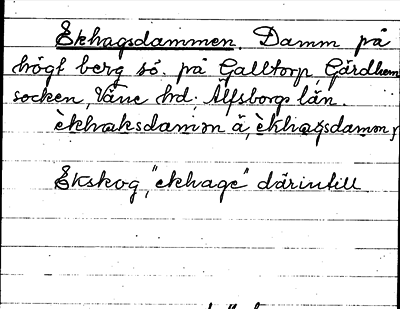 Ekhagsdammen. Damm på
högt berg sö. på Galltorp, Gärdhem
socken, Väne hd. Älfsborgs län.
èkhaksdamm ä, èkhagsdamm,
Ekskog, "ekhage" därintill